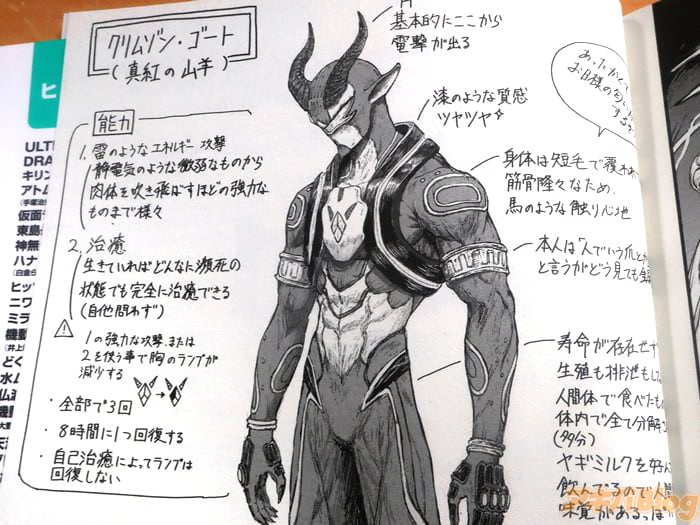 クリムゾン・ゴート
(真紅の山羊)
能力
1. 雷のようなエネルギー攻撃
静電気のような微弱なものから
肉体を吹き飛ばすほどの強力な
ものまで様々
2. 治癒
生きていればどんなに瀕死の
状態でも完全に治癒できる
(自他問わず)
1の強力な攻撃、または
2を使う事で胸のランプが
減少する
・全部で3回
・8時間に1つ回復する
・自己治癒によってランプは
回復しない
基本的にここから
電撃が出る
漆のような質感
ツヤツヤ
あったかくて
お日様の匂い
する
身体は短毛で覆われ
筋骨隆々なため、
馬のような触り心地
本人は「人でいう爪とか
と言うがどう見ても
寿命が存在せず
生殖も排泄もし
人間体で食べたもの
体内で全て分解
(多分)
ヤギミルクを好んで
飲んでるので人間
味覚があるっぽ
ヒ
ULT
DRA
キリン
アトム
(手塚治
仮面
東島
神無
ハナ
(白倉
ヒッ
ニワ
ミラ
機動
(井上)
どく
水ム
仏
機動
天
キルBlog